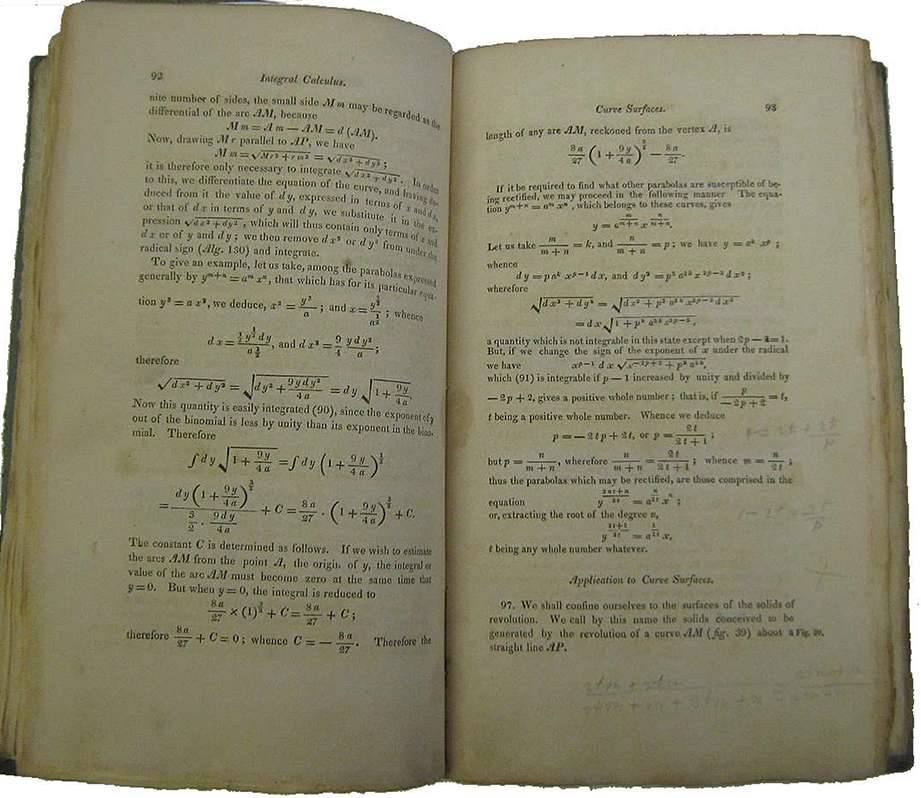 92
Integral Calculus.
nite number of sides, the small side Mm may be regarded as the
differential of the arc AM, because
Mm = Am — AM = d (AM).
Now, drawing Mr parallel to AP, we have
Mm = √(Mr² + rm²) = √(dx² + dy²);
it is therefore only necessary to integrate √(dx² + dy²). In order
to this, we differentiate the equation of the curve, and having de-
duced from it the value of dy, expressed in terms of x and dx,
or that of dx in terms of y and dy, we substitute it in the ex-
pression √(dx² + dy²), which will thus contain only terms of x and
dx or of y and dy; we then remove dx² or dy² from under the
radical sign (Alg. 130) and integrate.
To give an example, let us take, among the parabolas expressed
generally by y^(m+n) = a^m x^n, that which has for its particular equa-
tion y³ = a x², we deduce, x² = y³/a; and x = y^(3/2)/a^(1/2); whence
dx = (3/2 y^(1/2) dy)/a^(1/2), and dx² = 9/4 y dy²/a;
therefore
√(dx² + dy²) = √(dy² + 9y dy²/4a) = dy √(1 + 9y/4a).
Now this quantity is easily integrated (90), since the exponent of y
out of the binomial is less by unity than its exponent in the bino-
mial. Therefore
∫ dy √(1 + 9y/4a) = ∫ dy (1 + 9y/4a)^(1/2)
= dy (1 + 9y/4a)^(3/2) / (3/2 . 9dy/4a) + C = 8a/27 . (1 + 9y/4a)^(3/2) + C.
The constant C is determined as follows. If we wish to estimate
the arcs AM from the point A, the origin of y, the integral or
value of the arc AM must become zero at the same time that
y = 0. But when y = 0, the integral is reduced to
8a/27 × (1)^(3/2) + C = 8a/27 + C;
therefore 8a/27 + C = 0; whence C = — 8a/27. Therefore the
Curve Surfaces.
93
length of any arc AM, reckoned from the vertex A, is
8a/27 (1 + 9y/4a)^(3/2) — 8a/27.
If it be required to find what other parabolas are susceptible of be-
ing rectified, we may proceed in the following manner The equa-
tion y^(m+n) = a^m x^n, which belongs to these curves, gives
y = a^(m/(m+n)) x^(n/(m+n)).
Let us take m/(m+n) = k, and n/(m+n) = p; we have y = a^k x^p;
whence
dy = p a^k x^(p−1) dx, and dy² = p² a^(2k) x^(2p−2) dx²;
wherefore
√(dx² + dy²) = √(dx² + p² a^(2k) x^(2p−2) dx²)
= dx √(1 + p² a^(2k) x^(2p−2)),
a quantity which is not integrable in this state except when 2p — 2 = 1.
But, if we change the sign of the exponent of x under the radical
we have x^(p−1) dx √(x^(−2p+2) + p² a^(2k)),
which (91) is integrable if p — 1 increased by unity and divided by
— 2p + 2, gives a positive whole number; that is, if p/(−2p+2) = t,
t being a positive whole number. Whence we deduce
p = — 2tp + 2t, or p = 2t/(2t+1);
but p = n/(m+n), wherefore n/(m+n) = 2t/(2t+1); whence m = n/2t;
thus the parabolas which may be rectified, are those comprised in the
equation y^((2nt+n)/2t) = a^(n/2t) x^n;
or, extracting the root of the degree n,
y^((2t+1)/2t) = a^(1/2t) x,
t being any whole number whatever.
Application to Curve Surfaces.
97. We shall confine ourselves to the surfaces of the solids of
revolution. We call by this name the solids conceived to be
generated by the revolution of a curve AM (fig. 39) about a Fig. 39.
straight line AP.